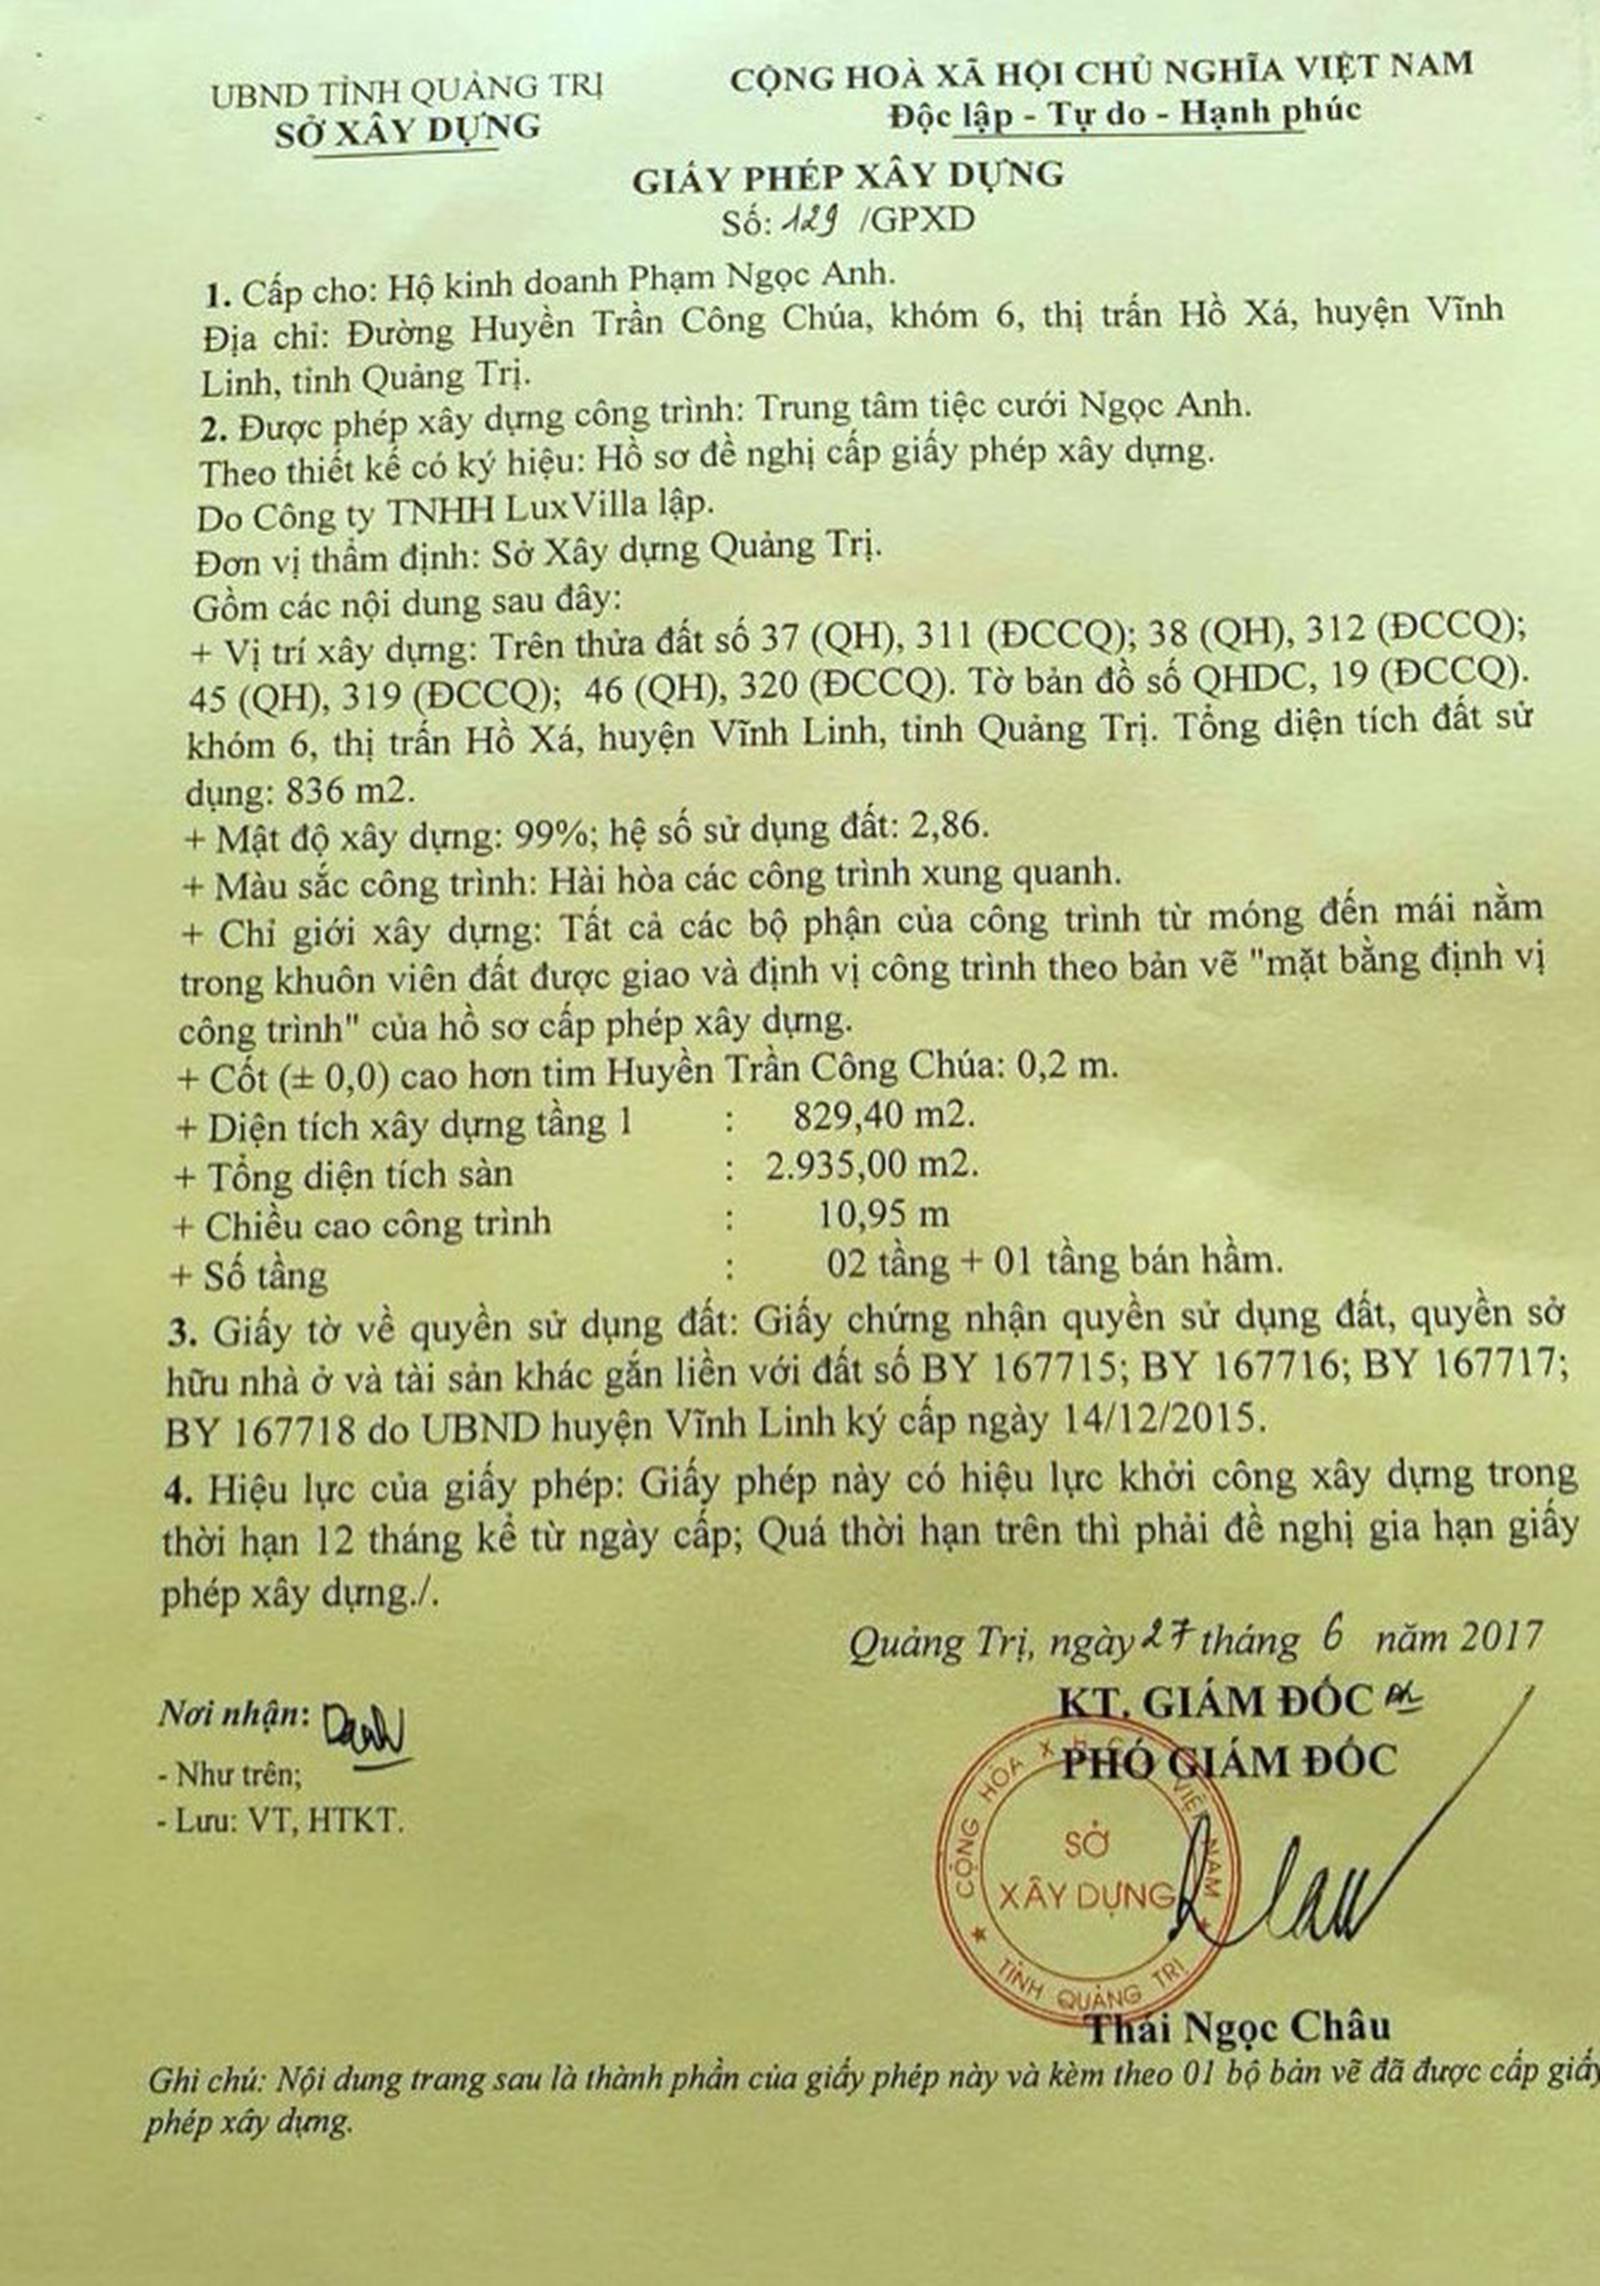 UBND TỈNH QUẢNG TRỊ
SỞ XÂY DỰNG
CỘNG HOÀ XÃ HỘI CHỦ NGHĨA VIỆT NAM
Độc lập - Tự do - Hạnh phúc
GIẤY PHÉP XÂY DỰNG
Số: 129 /GPXD
1. Cấp cho: Hộ kinh doanh Phạm Ngọc Anh.
Địa chỉ: Đường Huyền Trần Công Chúa, khóm 6, thị trấn Hồ Xá, huyện Vĩnh
Linh, tỉnh Quảng Trị.
2. Được phép xây dựng công trình: Trung tâm tiệc cưới Ngọc Anh.
Theo thiết kế có ký hiệu: Hồ sơ đề nghị cấp giấy phép xây dựng.
Do Công ty TNHH LuxVilla lập.
Đơn vị thẩm định: Sở Xây dựng Quảng Trị.
Gồm các nội dung sau đây:
+ Vị trí xây dựng: Trên thửa đất số 37 (QH), 311 (ĐCCQ); 38 (QH), 312 (ĐCCQ);
45 (QH), 319 (ĐCCQ); 46 (QH), 320 (ĐCCQ). Tờ bản đồ số QHDC, 19 (ĐCCQ).
khóm 6, thị trấn Hồ Xá, huyện Vĩnh Linh, tỉnh Quảng Trị. Tổng diện tích đất sử
dụng: 836 m2.
+ Mật độ xây dựng: 99%; hệ số sử dụng đất: 2,86.
+ Màu sắc công trình: Hài hòa các công trình xung quanh.
+ Chỉ giới xây dựng: Tất cả các bộ phận của công trình từ móng đến mái nằm
trong khuôn viên đất được giao và định vị công trình theo bản vẽ "mặt bằng định vị
công trình" của hồ sơ cấp phép xây dựng.
+ Cốt (± 0,0) cao hơn tim Huyền Trần Công Chúa: 0,2 m.
+ Diện tích xây dựng tầng 1 : 829,40 m2.
+ Tổng diện tích sàn : 2.935,00 m2.
+ Chiều cao công trình : 10,95 m
+ Số tầng : 02 tầng + 01 tầng bán hầm.
3. Giấy tờ về quyền sử dụng đất: Giấy chứng nhận quyền sử dụng đất, quyền sở
hữu nhà ở và tài sản khác gắn liền với đất số BY 167715; BY 167716; BY 167717;
BY 167718 do UBND huyện Vĩnh Linh ký cấp ngày 14/12/2015.
4. Hiệu lực của giấy phép: Giấy phép này có hiệu lực khởi công xây dựng trong
thời hạn 12 tháng kể từ ngày cấp; Quá thời hạn trên thì phải đề nghị gia hạn giấy
phép xây dựng./.
Quảng Trị, ngày 27 tháng 6 năm 2017
KT. GIÁM ĐỐC
PHÓ GIÁM ĐỐC
Nơi nhận:
- Như trên;
- Lưu: VT, HTKT.
CỘNG HÒA X.H.C.N VIỆT NAM
SỞ
XÂY DỰNG
TỈNH QUẢNG TRỊ
Thái Ngọc Châu
Ghi chú: Nội dung trang sau là thành phần của giấy phép này và kèm theo 01 bộ bản vẽ đã được cấp giấy
phép xây dựng.